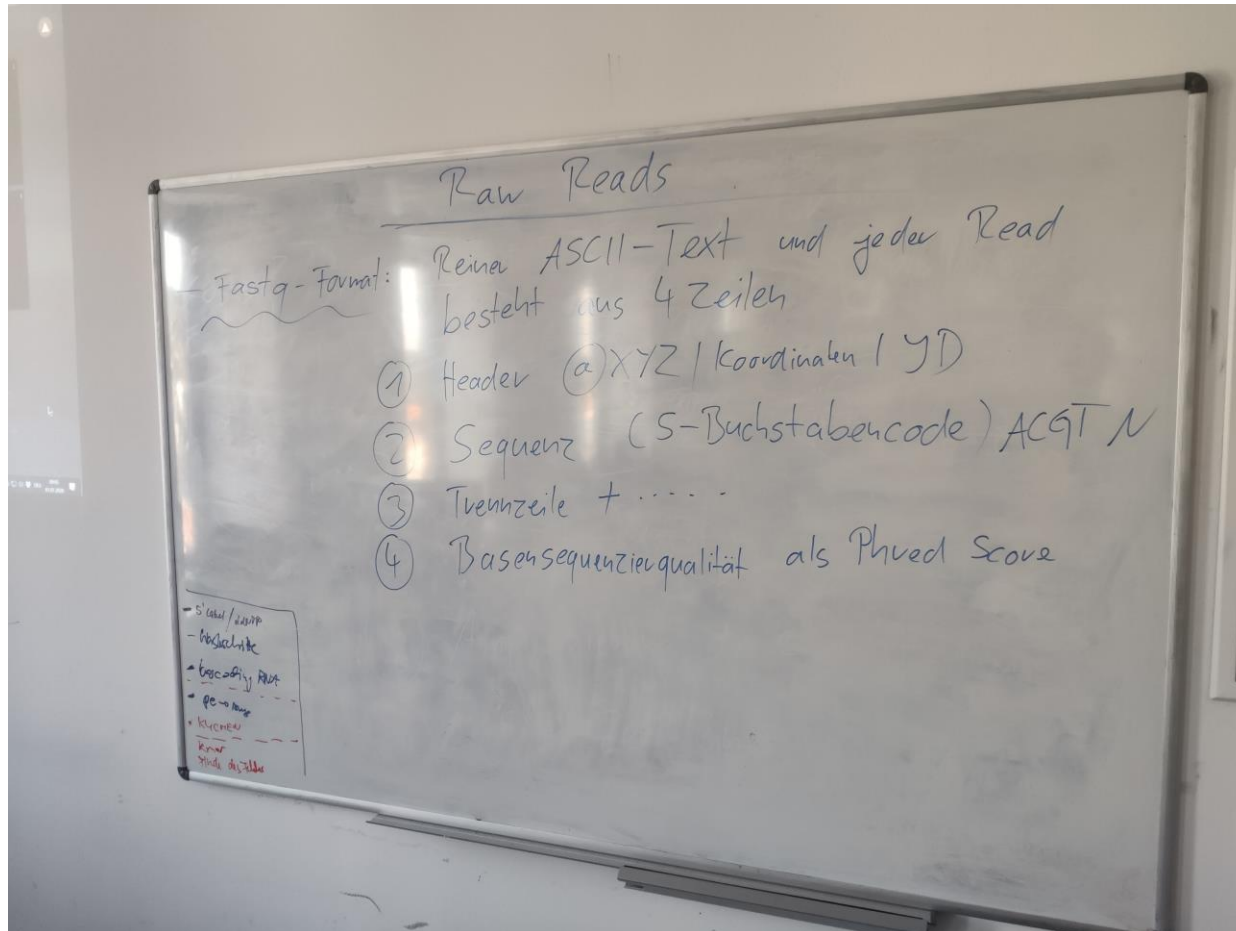 Raw Reads
- Fastq-Format: Reiner ASCII-Text und jeder Read
besteht aus 4 Zeilen
① Header @XYZ / Koordinaten / ID
② Sequenz (5-Buchstabencode) ACGT N
③ Trennzeile + .....
④ Basensequenzierqualität als Phred Score